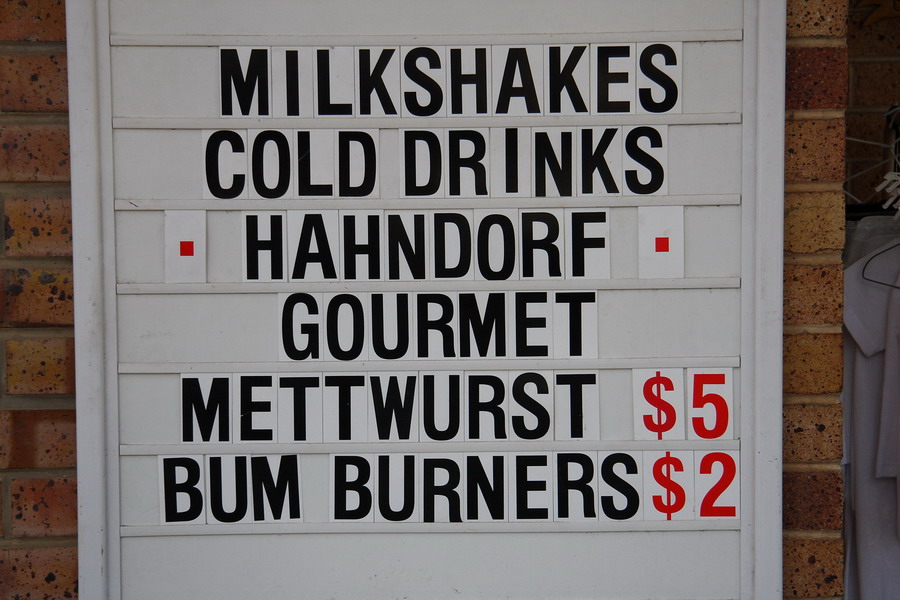 MILKSHAKES
COLD DRINKS
· HAHNDORF ·
GOURMET
METTWURST $5
BUM BURNERS $2